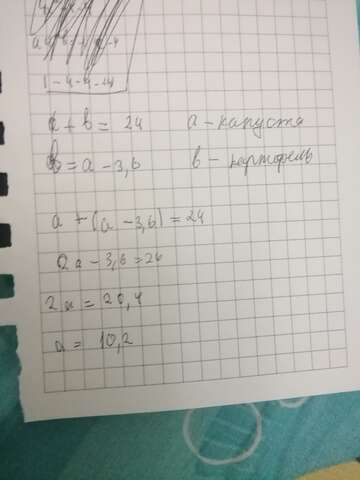 1 - 4 - 4 - 4
a + b = 24 a - капуста
b = a - 3,6 b - картофель
a + (a - 3,6) = 24
2a - 3,6 = 24
2a = 20,4
a = 10,2